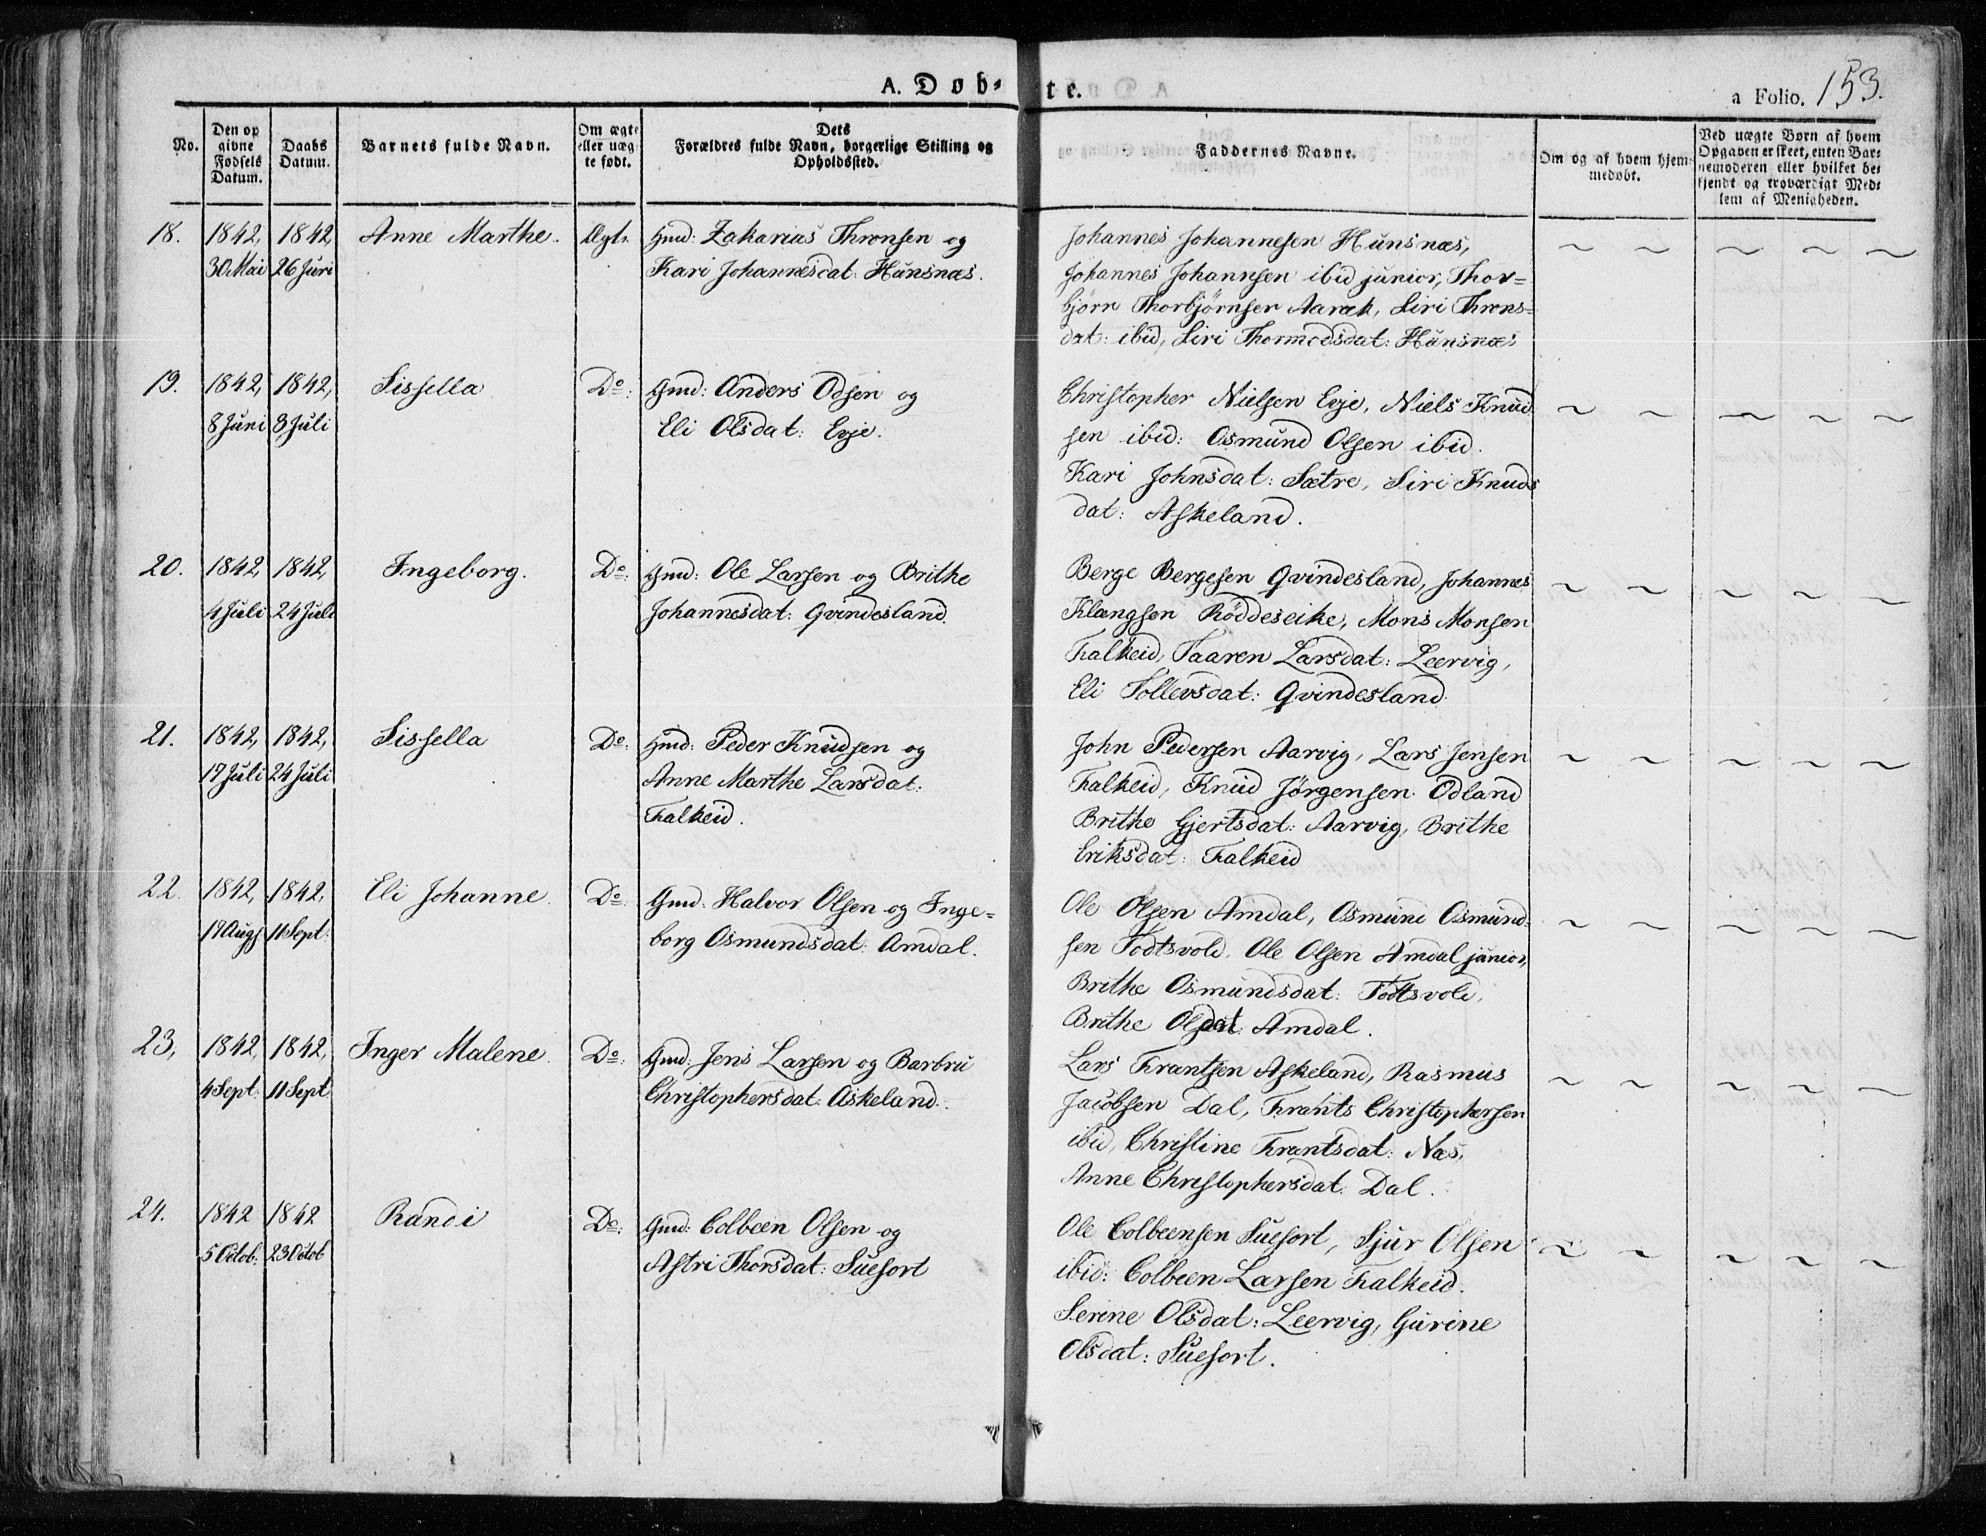 A. Døb-te.
a Folio. 153.
No.
Den op
givne
Fødsels
Datum.
Daabs
Datum.
Barnets fulde Navn.
Om ægte
eller uæg
te født.
Dets
Forældres fulde Navn, borgerlige Stilling og
Opholdssted.
Faddernes Navne.
Om og af hvem hjem-
medøbt.
Ved uægte Børn af hvem
Opgaven er skeet, enten Bar-
nemoderen eller hvilket be-
kjendt og troværdigt Med-
lem af Menigheden.
18. 1842, 1842, Anne Marthe. Ægte. Gmd: Zakarias Thronsen og
30 Mai 26 Juni Kari Johannesdat: Hunsnæs.
Johannes Johannesen Hunsnæs,
Johannes Johannsen ibid junior, Thor-
bjørn Thorbjørnsen Aarek, Siri Throns-
dat: ibid, Siri Thormodsdat: Hunsnæs
19. 1842, 1842, Sissella Do: Gmd: Anders Odsen og
8 Juni 3 Juli Eli Olsdat: Evje.
Christopher Nielsen Evje, Niels Knud
sen ibid: Osmund Olsen ibid.
Kari Johnsdat: Sætre, Siri Knuds
dat: Askeland.
20. 1842, 1842, Ingeborg. Do: Gmd: Ole Larsen og Brithe
4 Juli 24 Juli Johannesdat: Qvindesland.
Berge Bergesen Qvindesland, Johannes
Klængsen Röddeseike, Mons Monsen
Falkeid, Taaren Larsdat: Leervig,
Eli Tollevsdat: Qvindesland.
21. 1842, 1842, Sissella Do: Gmd: Peder Knudsen og
17 Juli 24 Juli Anne Marthe Larsdat:
Falkeid.
John Pedersen Aarvig, Lars Jensen
Falkeid, Knud Jørgensen Odland
Brithe Gjertsdat: Aarvig, Brithe
Eriksdat: Falkeid
22. 1842, 1842, Eli Johanne. Do: Gmd: Halvor Olsen og Inge-
19 Augs 11 Sept: borg Osmundsdat: Amdal.
Ole Olsen Amdal, Osmund Osmund-
sen Todtsvold, Ole Olsen Amdal junior,
Brithe Osmundsdat: Todtsvold,
Brithe Olsdat: Amdal.
23, 1842, 1842, Inger Malene. Do: Gmd: Jens Larsen og Barbru
4 Sept: 11 Sept Christophersdat: Askeland.
Lars Frantsen Askeland, Rasmus
Jacobsen Dal, Frants Christophersen
ibid, Christine Frantsdat: Næs,
Anne Christophersdat: Dal.
24. 1842 1842 Randi Do: Gmd: Colbeen Olsen og
5 Octob: 23 Octob Astri Thorsdat: Suefort
Ole Colbeensen Suefort, Sjur Olsen
ibid: Colbeen Larsen Falkeid.
Serine Olsdat: Leervig, Gurine
Olsdat: Suefort.